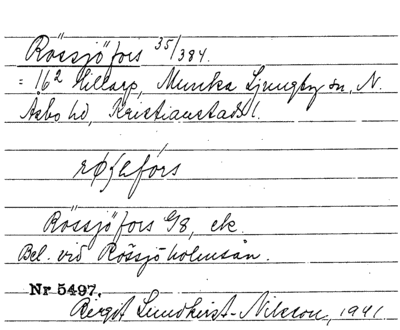 Rössjöfors 35/384.
= 16² Hillarp, Munka Ljungby sn, N.
Åsbo hd, Kristianstads l.
Rössjöfors G8, ek.
Bel. vid Rössjöholmsån.
Nr 5497.
Birgit Lundkvist-Nilsson, 1941